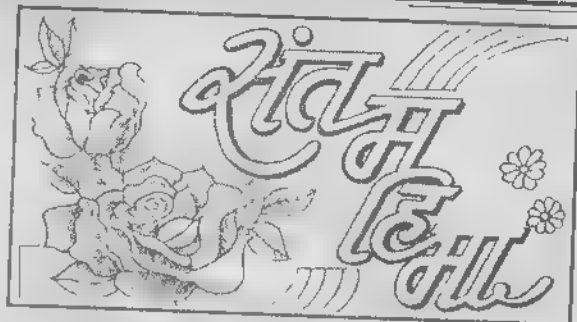 संत
म
हि
मा